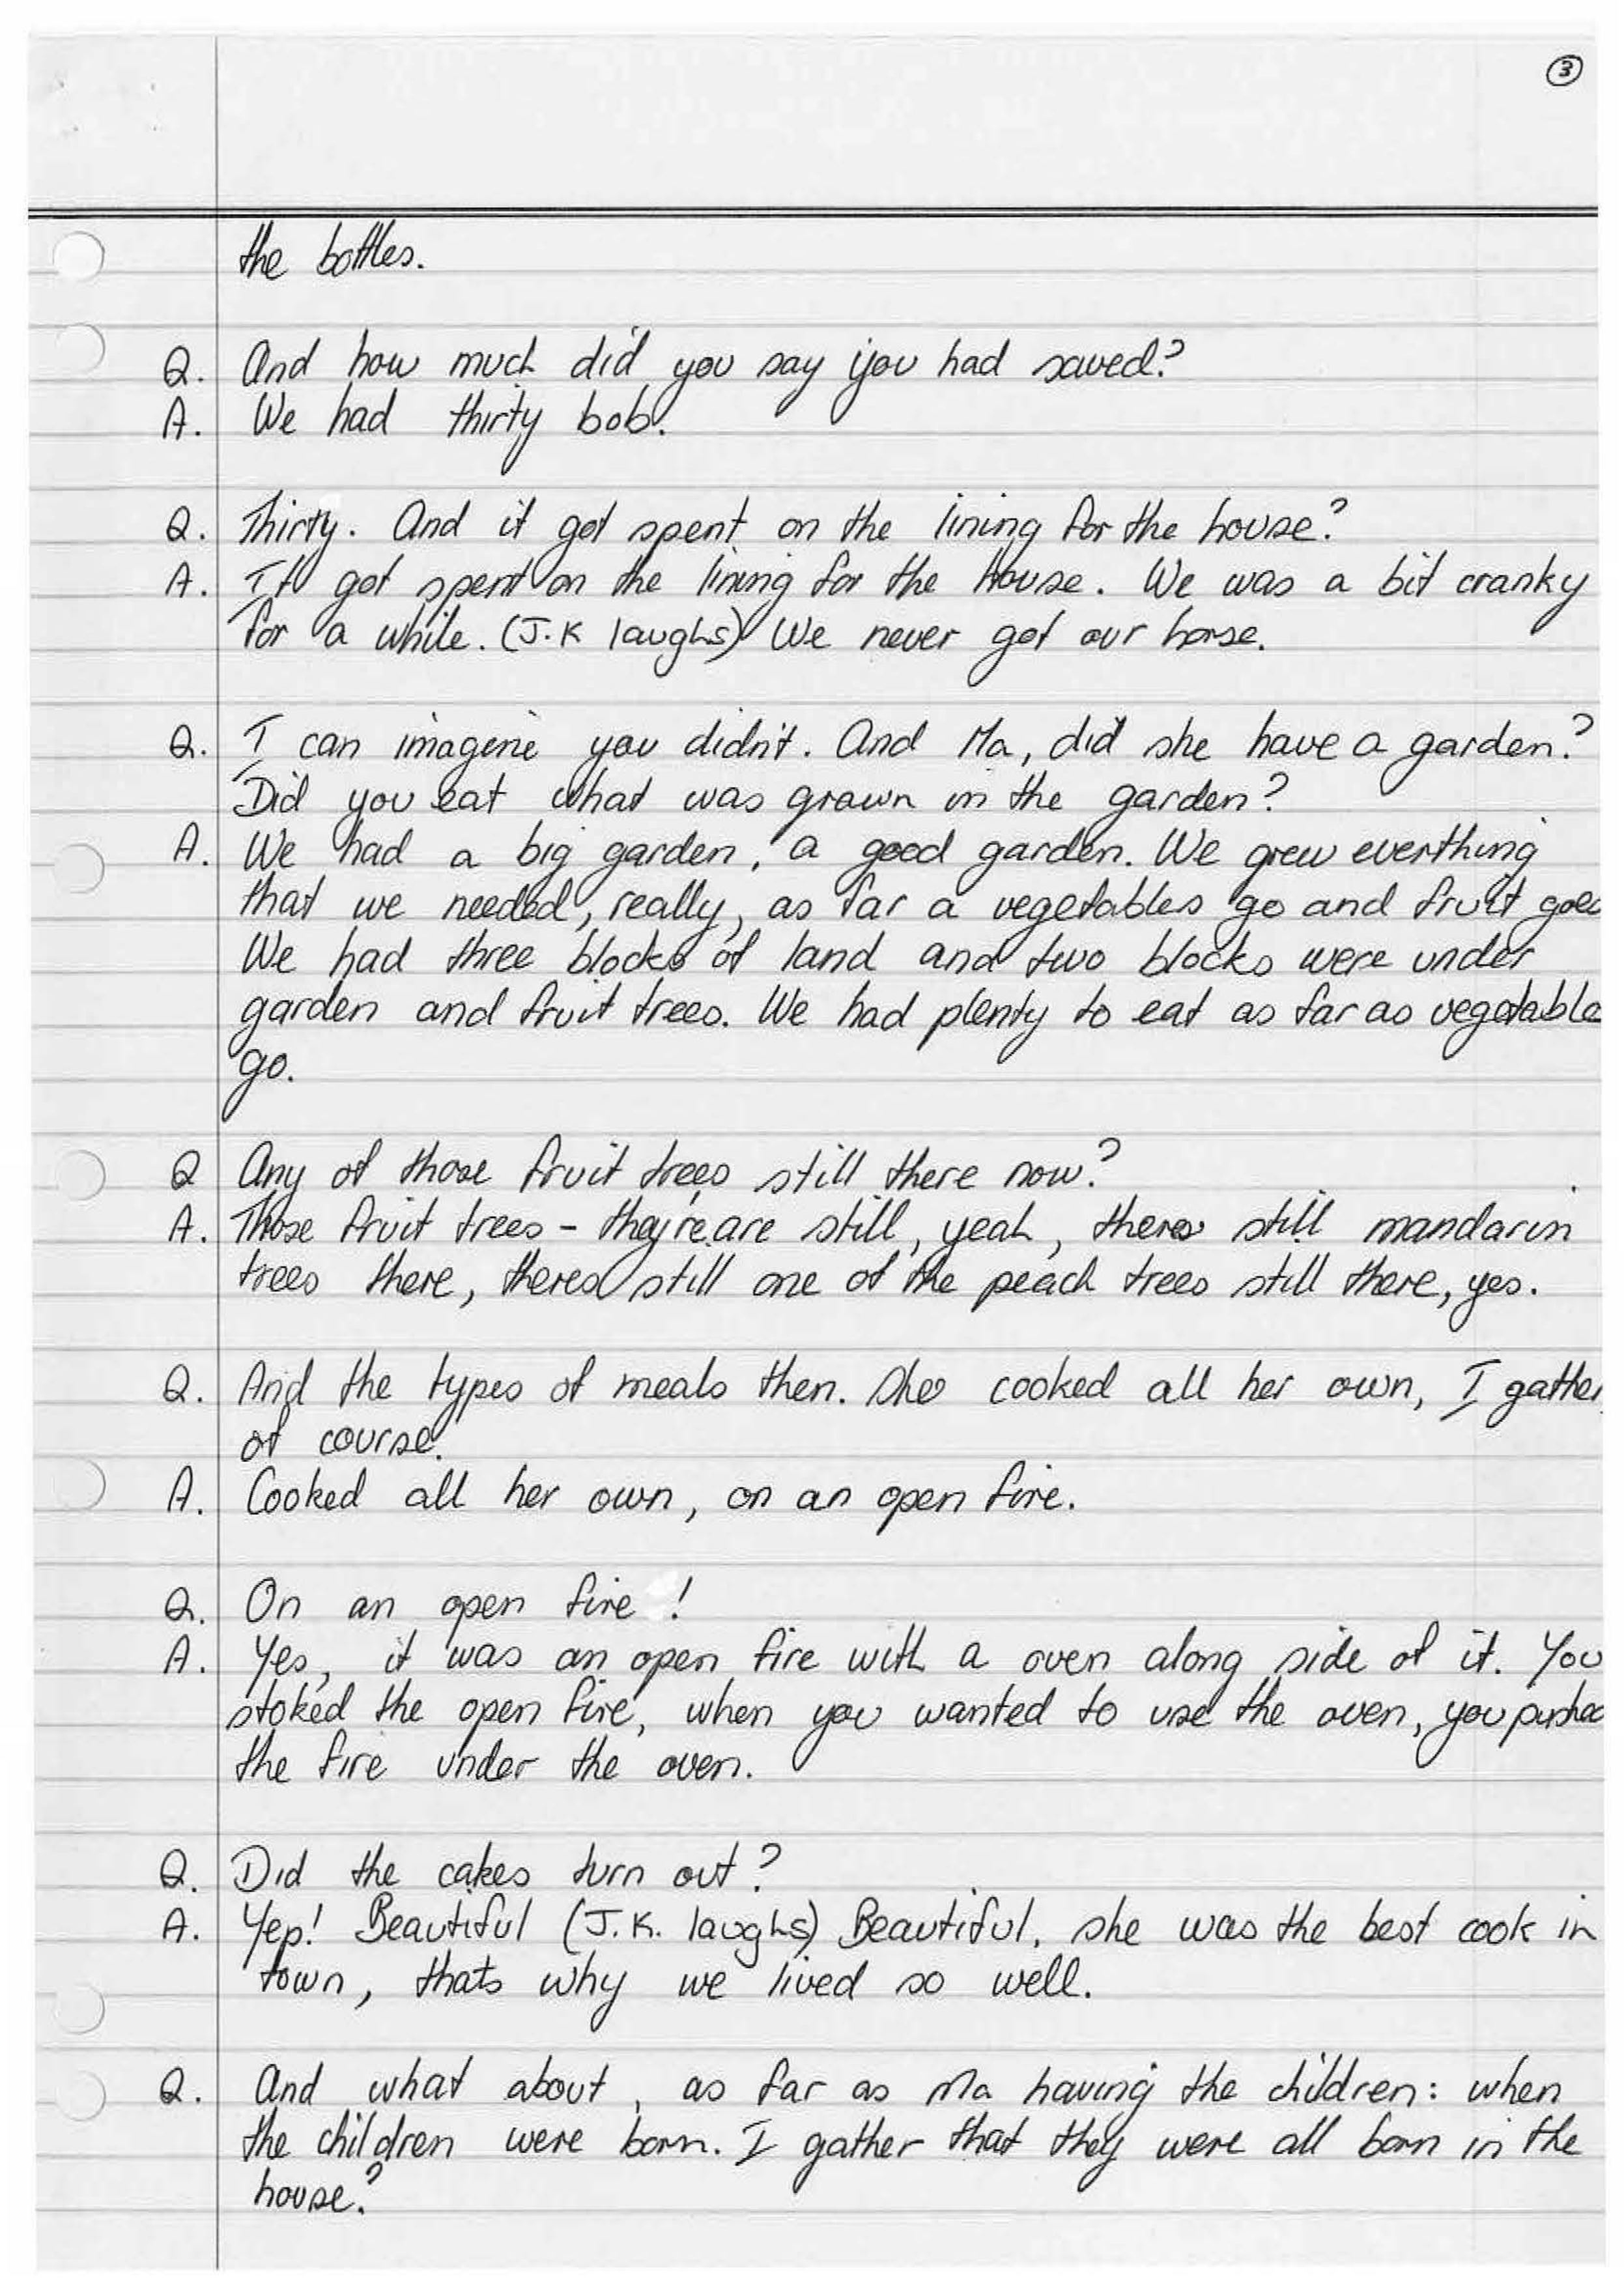 ③
the bottles.
Q. And how much did you say you had saved?
A. We had thirty bob.
Q. Thirty. And it got spent on the lining for the house?
A. It got spent on the lining for the house. We was a bit cranky
for a while. (J.K laughs) We never got our horse.
Q. I can imagine you didn't. And Ma, did she have a garden?
Did you eat what was grown in the garden?
A. We had a big garden, a good garden. We grew everthing
that we needed, really, as far a vegetables go and fruit goes
We had three blocks of land and two blocks were under
garden and fruit trees. We had plenty to eat as far as vegetable
go.
Q Any of those fruit trees still there now?
A. Those fruit trees - they're are still, yeah, theres still mandarin
trees there, theres still one of the peach trees still there, yes.
Q. And the types of meals then. She cooked all her own, I gather
of course.
A. Cooked all her own, on an open fire.
Q. On an open fire !
A. Yes, it was an open fire with a oven along side of it. You
stoked the open fire, when you wanted to use the oven, you pushed
the fire under the oven.
Q. Did the cakes turn out?
A. Yep! Beautiful (J.K. laughs) Beautiful, she was the best cook in
town, thats why we lived so well.
Q. And what about, as far as Ma having the children: when
the children were born. I gather that they were all born in the
house?